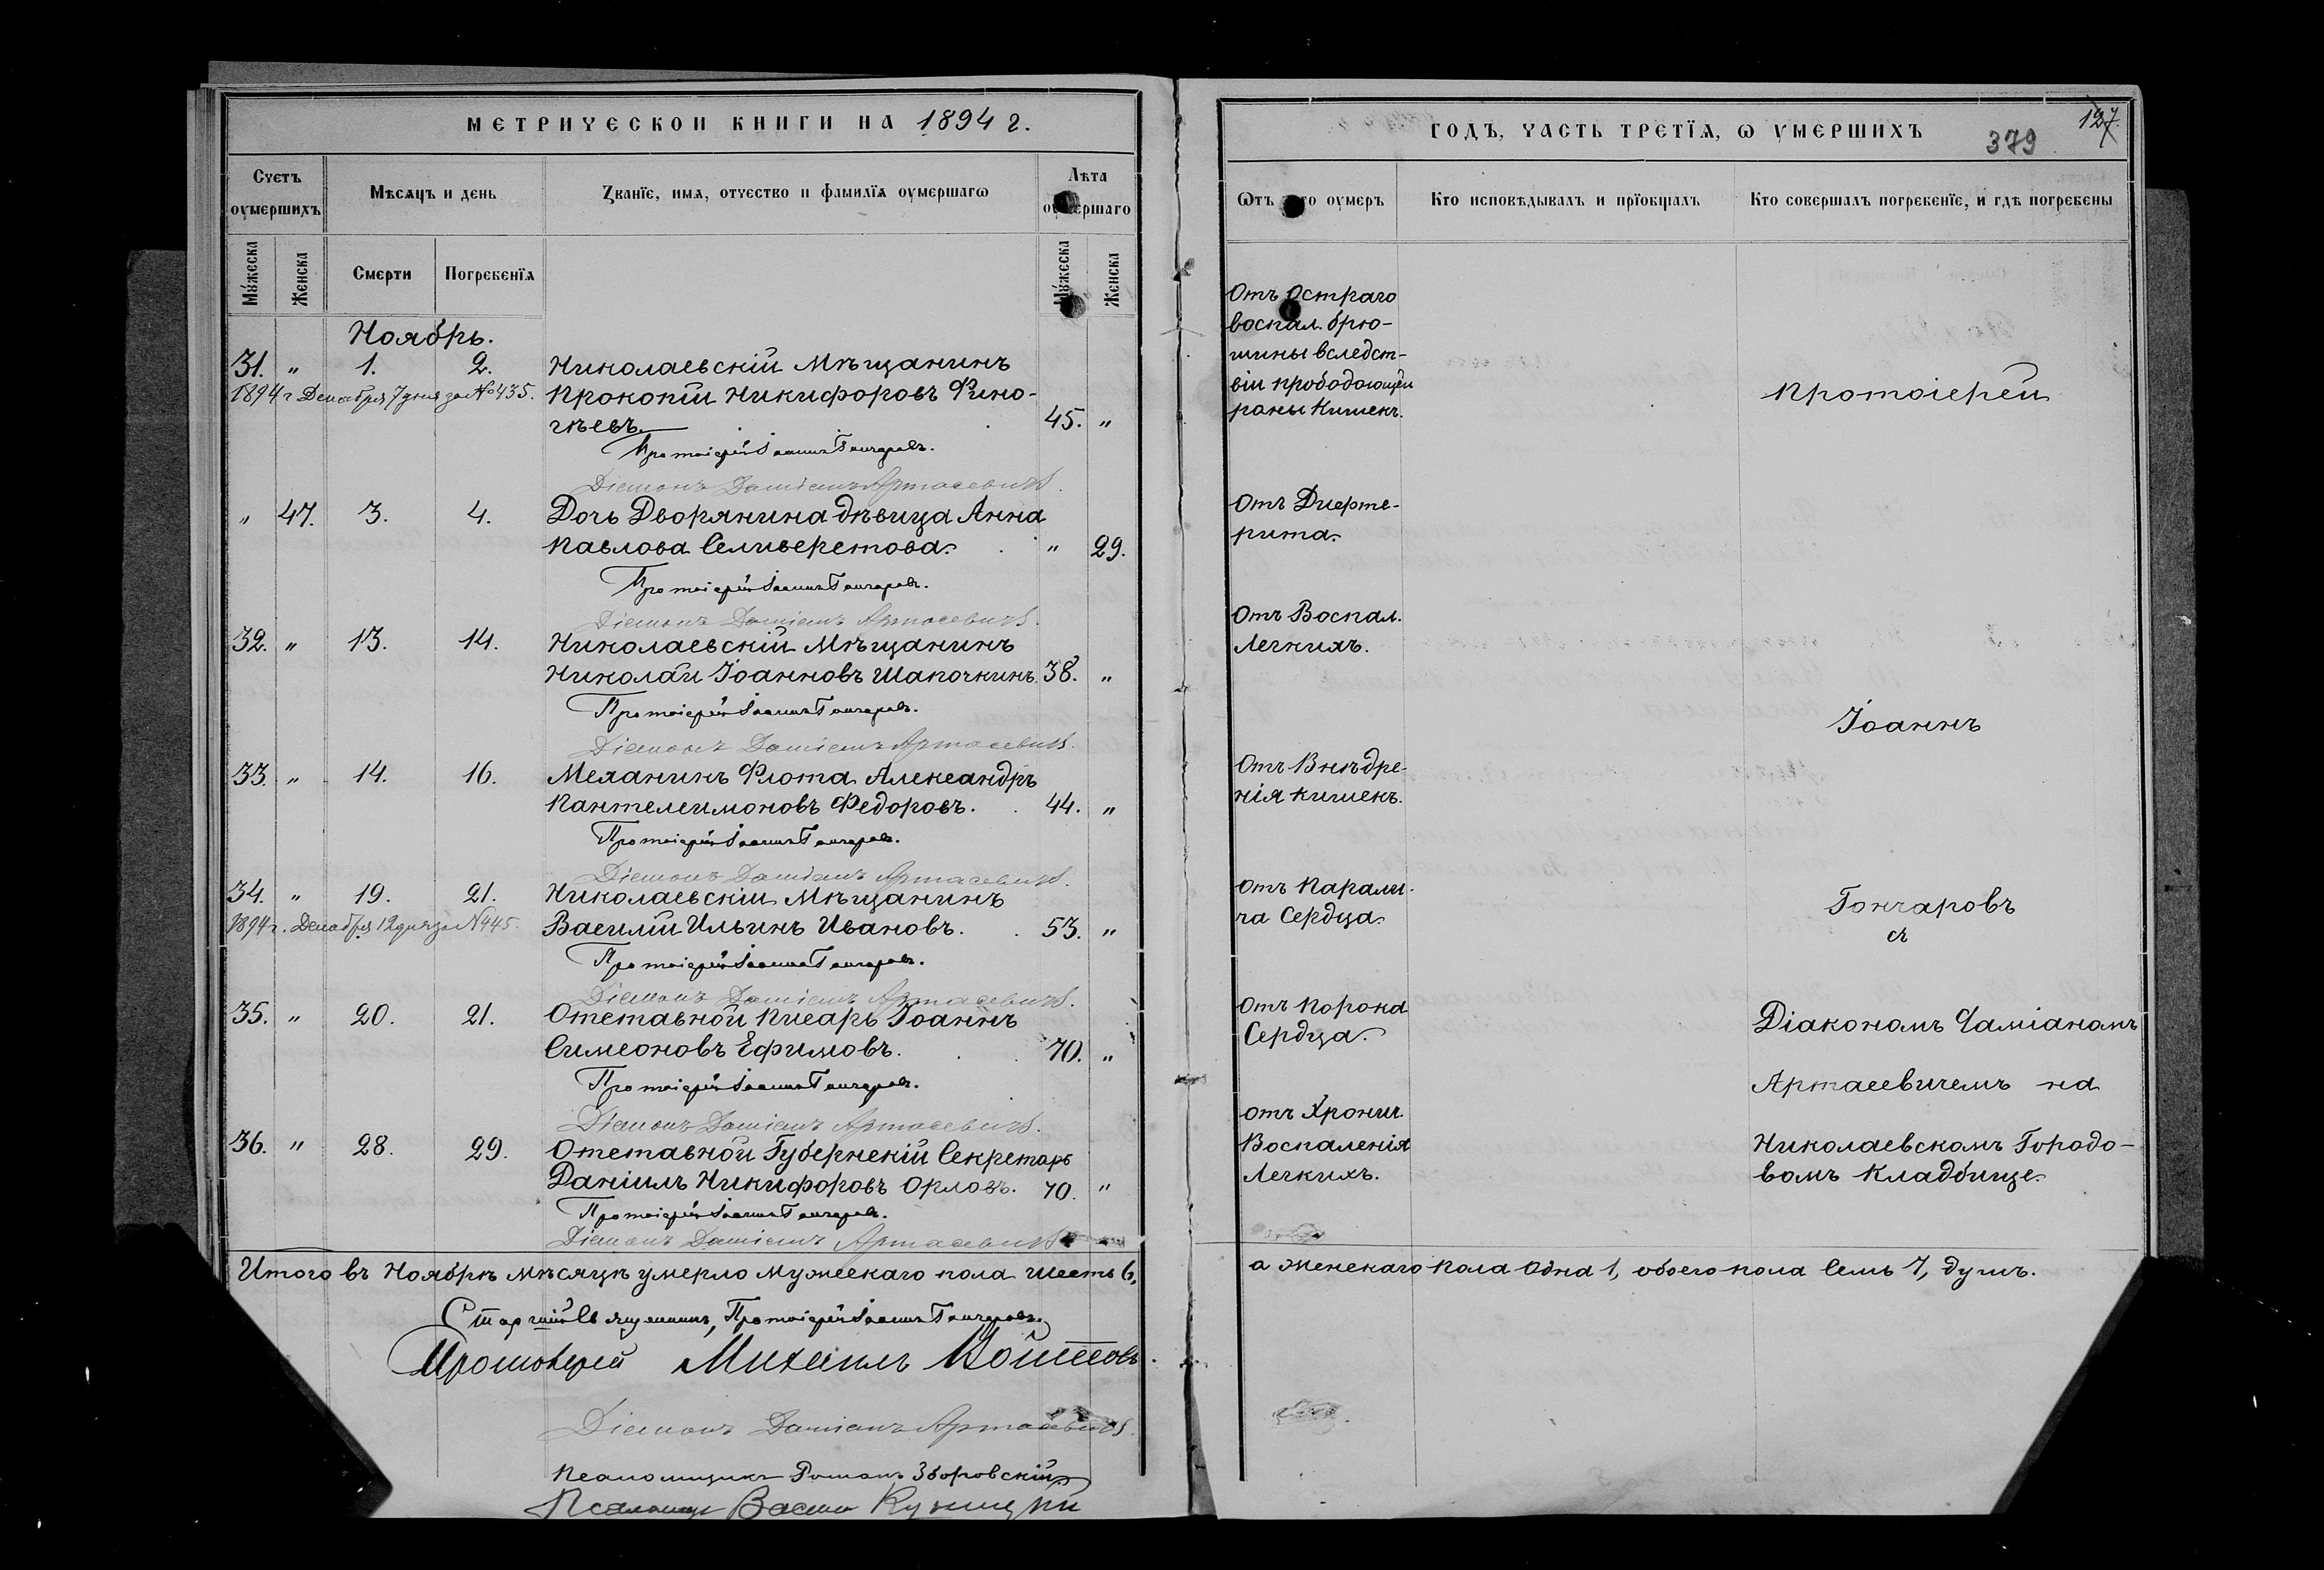 МЕТРИЧЕСКОЙ КНИГИ НА 1894 г.
Счетъ оумершихъ
Мѣсяцъ и день
Званїе, имя, отчество и фамилїя оумершагѡ
Лѣта
Мужеска
Женска
Смерти
Погребенїя
Мужеска
Женска
Ноябрь.
31. " 1. 2. Николаевскій Мѣщанинъ
1894 г. Декабря 7 дня за № 435. Прокопій Никифоровъ Фино-
гѣевъ. 45. "
Протоіерей Іоаннъ Гончаровъ.
Діаконъ Даміанъ Артасевичъ.
" 47. 3. 4. Дочь Дворянина дѣвица Анна
Павлова Селиверстова. " 29.
Протоіерей Іоаннъ Гончаровъ.
Діаконъ Даміанъ Артасевичъ.
32. " 13. 14. Николаевскій Мѣщанинъ
Николай Іоанновъ Шапочкинъ. 38. "
Протоіерей Іоаннъ Гончаровъ.
Діаконъ Даміанъ Артасевичъ.
33. " 14. 16. Механикъ Флота Александръ
Пантелеимоновъ Федоровъ. 44. "
Протоіерей Іоаннъ Гончаровъ.
Діаконъ Даміанъ Артасевичъ.
34. " 19. 21. Николаевскій Мѣщанинъ
1894 г. Декабря 12 дня за № 445. Василій Ильинъ Ивановъ. 53. "
Протоіерей Іоаннъ Гончаровъ.
Діаконъ Даміанъ Артасевичъ.
35. " 20. 21. Отставной Писарь Іоаннъ
Симеоновъ Ефимовъ. 70. "
Протоіерей Іоаннъ Гончаровъ.
Діаконъ Даміанъ Артасевичъ.
36. " 28. 29. Отставной Губернскій Секретарь
Даніилъ Никифоровъ Орловъ. 70. "
Протоіерей Іоаннъ Гончаровъ.
Діаконъ Даміанъ Артасевичъ
Итого въ Ноябрѣ мѣсяцѣ умерло мужескаго пола шесть 6,
Старшій Священникъ, Протоіерей Іоаннъ Гончаровъ.
Протоіерей Михаилъ
Діаконъ Даміанъ Артасевичъ
Псаломщикъ Романъ Зборовскій
ГОДЪ, ЧАСТЬ ТРЕТЇЯ, Ѡ УМЕРШИХЪ
379
127
Ѡтъ оумеръ
Кто исповѣдывалъ и прїобщалъ
Кто совершалъ погребенїе, и гдѣ погребены
Отъ остраго
воспал. брю-
шины вследст-
віи прободающей
раны Кишекъ.
Отъ Дифте-
рита.
Отъ Воспал.
Легкихъ.
Отъ Внѣдре-
нія кишекъ.
Отъ Парали-
ча Сердца.
Отъ Порока
Сердца.
Отъ Хронич.
Воспаленія
Легкихъ.
Протоіерей
Іоаннъ
Гончаровъ
съ
Діакономъ Даміаномъ
Артасевичемъ на
Николаевскомъ Городо-
вомъ Кладбище.
а женскаго пола одна 1, обоего пола Семь 7, душъ.